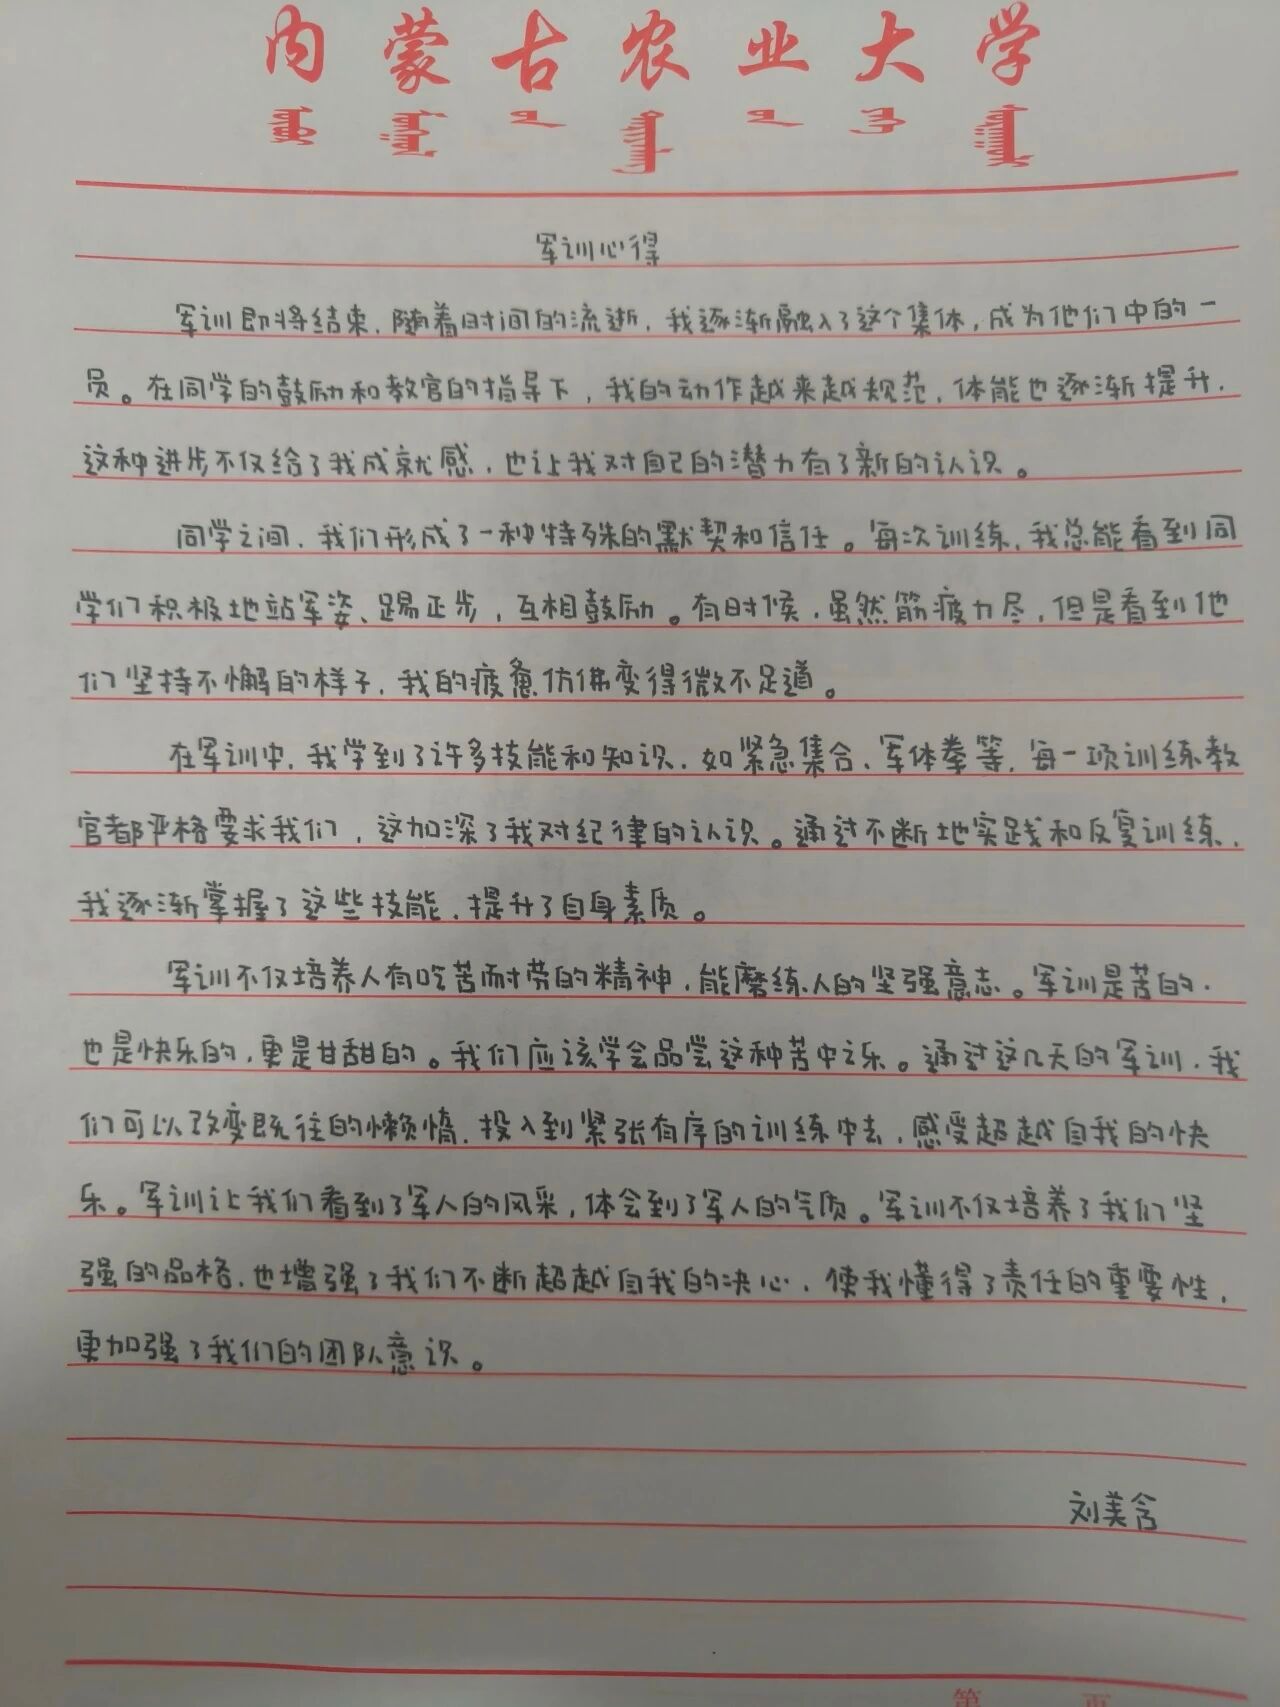 内蒙古农业大学
军训心得
军训即将结束，随着时间的流逝，我逐渐融入了这个集体，成为他们中的一
员。在同学的鼓励和教官的指导下，我的动作越来越规范，体能也逐渐提升，
这种进步不仅给了我成就感，也让我对自己的潜力有了新的认识。
同学之间，我们形成了一种特殊的默契和信任。每次训练，我总能看到同
学们积极地站军姿、踢正步，互相鼓励。有时候，虽然筋疲力尽，但是看到他
们坚持不懈的样子，我的疲惫仿佛变得微不足道。
在军训中，我学到了许多技能和知识，如紧急集合、军体拳等，每一项训练教
官都严格要求我们，这加深了我对纪律的认识。通过不断地实践和反复训练，
我逐渐掌握了这些技能，提升了自身素质。
军训不仅培养人有吃苦而耐劳的精神，能磨练人的坚强意志。军训是苦的，
也是快乐的，更是甘甜的。我们应该学会品尝这种苦中之乐。通过这几天的军训，我
们可以改变既往的懒惰，投入到紧张有序的训练中去，感受超越自我的快
乐。军训让我们看到了军人的风采，体会到了军人的气质。军训不仅培养了我们坚
强的品格，也增强了我们不断超越自我的决心，使我懂得了责任的重要性，
更加强了我们的团队意识。
刘美含
第 页